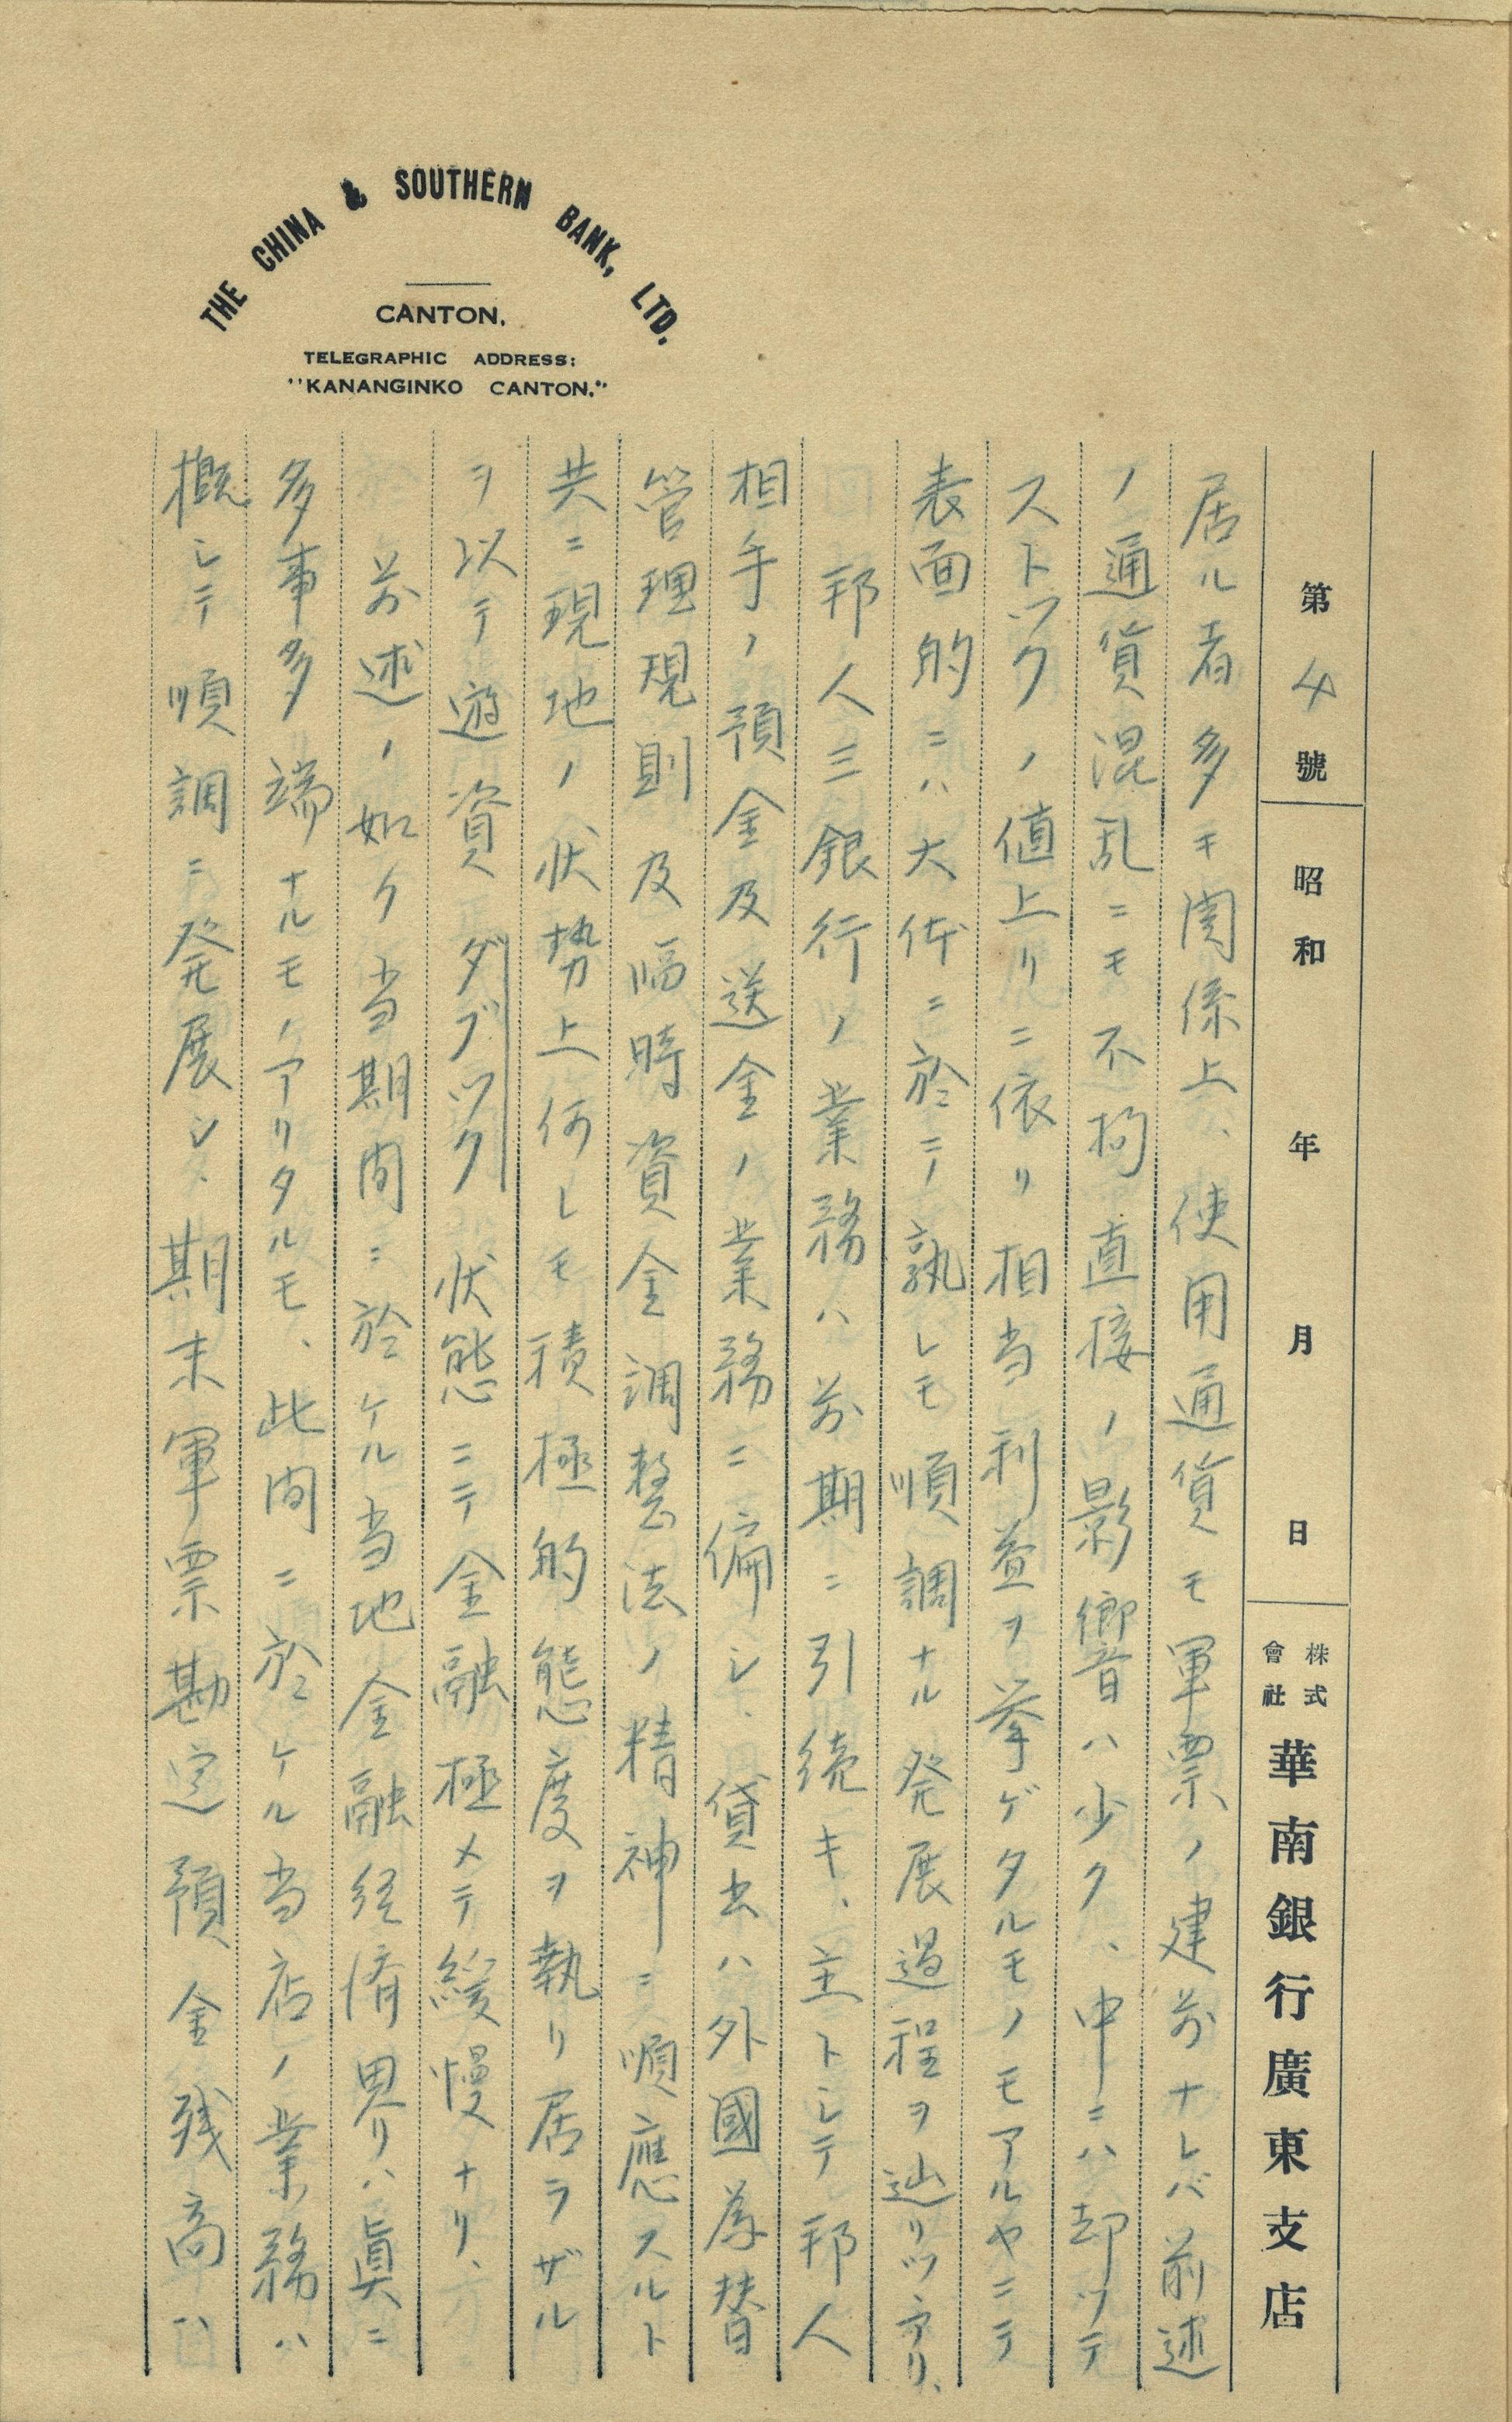 THE CHINA & SOUTHERN BANK, LTD.
CANTON.
TELEGRAPHIC ADDRESS:
"KANANGINKO CANTON."
第4號 昭和 年 月 日 株式會社 華南銀行廣東支店
居ル者多キ関係上、使用通貨モ軍票ノ建前ナレバ前述
ノ通貨混乱ニモ不拘直接ノ影響ハ少ク、中ニハ却ツテ
ストツクノ値上リニ依リ相当利益ヲ挙ゲタルモノモアルヤニテ
表面的ニハ大体ニ於テ孰レモ順調ナル発展過程ヲ辿リツヽアリ、
邦人三銀行ノ業務ハ前期ニ引続キ、主トシテ邦人
相手ノ預金及送金ノ業務ニ偏シ、貸出ハ外國為替
管理規則及臨時資金調整法ノ精神ニ順應スルト
共ニ現地ノ状勢上何レモ積極的態度ヲ執リ居ラザル
ヲ以テ遊資ダブツク状態ニテ金融極メテ緩慢ナリ、
前述ノ如ク当期間ニ於ケル当地金融経済界ハ眞ニ
多事多端ナルモノアリタルモ、此間ニ於ケル当店ノ業務ハ
概シテ順調ニ発展シ、期末軍票勘定預金残高ハ